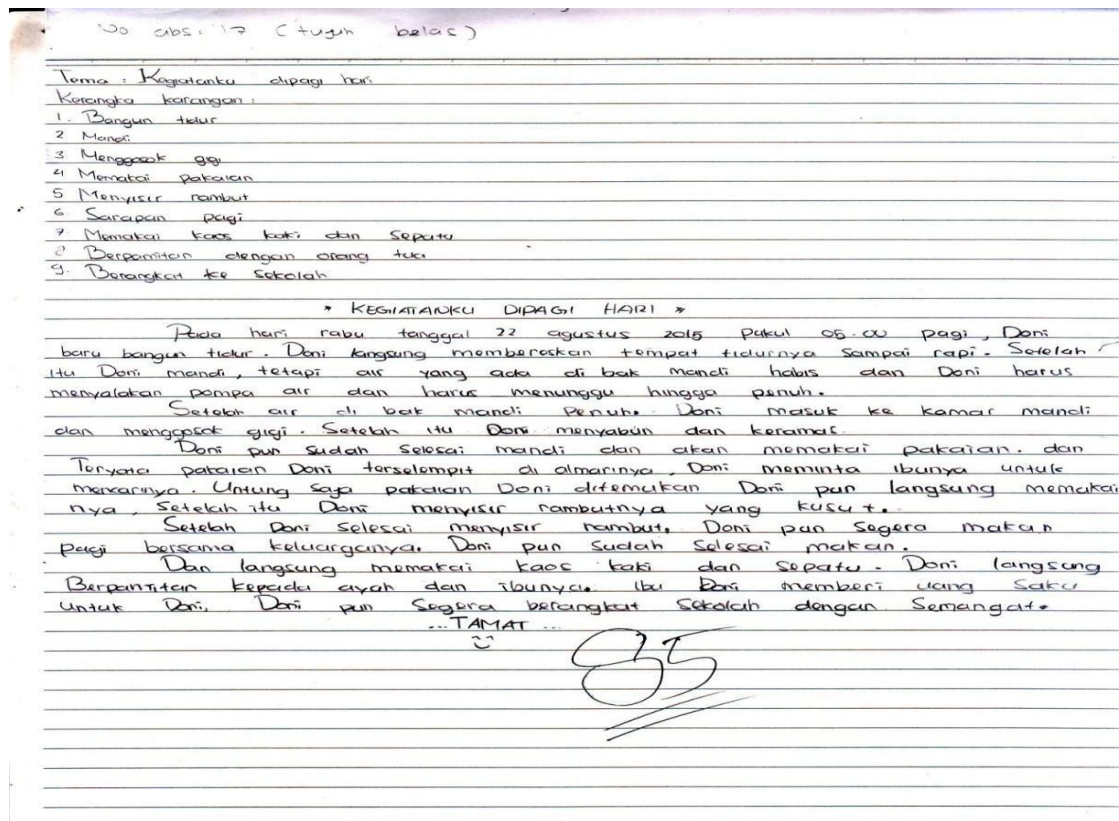 No abs. 17 (tujuh belas)
Tema : Kegiatanku dipagi hari
Kerangka karangan :
1. Bangun tidur
2 Mandi
3 Menggosok gigi
4 Memakai pakaian
5 Menyisir rambut
6. Sarapan pagi
7. Memakai kaos kaki dan Sepatu
8 Berpamitan dengan orang tua
9. Berangkat ke Sekolah
* KEGIATANKU DIPAGI HARI *
Pada hari rabu tanggal 22 agustus 2015 pukul 05.00 pagi, Doni
baru bangun tidur. Doni langsung membereskan tempat tidurnya sampai rapi. Setelah
itu Doni mandi, tetapi air yang ada di bak mandi habis dan Doni harus
menyalakan pompa air dan harus menunggu hingga penuh.
Setelah air di bak mandi Penuh. Doni masuk ke kamar mandi
dan menggosok gigi. Setelah itu Doni menyabun dan keramas.
Doni pun sudah selesai mandi dan akan memakai pakaian. dan
Teryata pakaian Doni terselempit di almarinya, Doni meminta ibunya untuk
mencarinya. Untung saja pakaian Doni ditemukan Doni pun langsung memakai
nya, Setelah itu Doni menyisir rambutnya yang kusut.
Setelah Doni Selesai menyisir rambut, Doni pun Segera makan
pagi bersama keluarganya. Doni pun Sudah Selesai makan.
Dan langsung memakai kaos kaki dan sepatu. Doni langsung
Berpamitan kepada ayah dan ibunya. ibu Doni memberi uang Saku
untuk Doni, Doni pun Segera berangkat Sekolah dengan Semangat.
... TAMAT ...
85